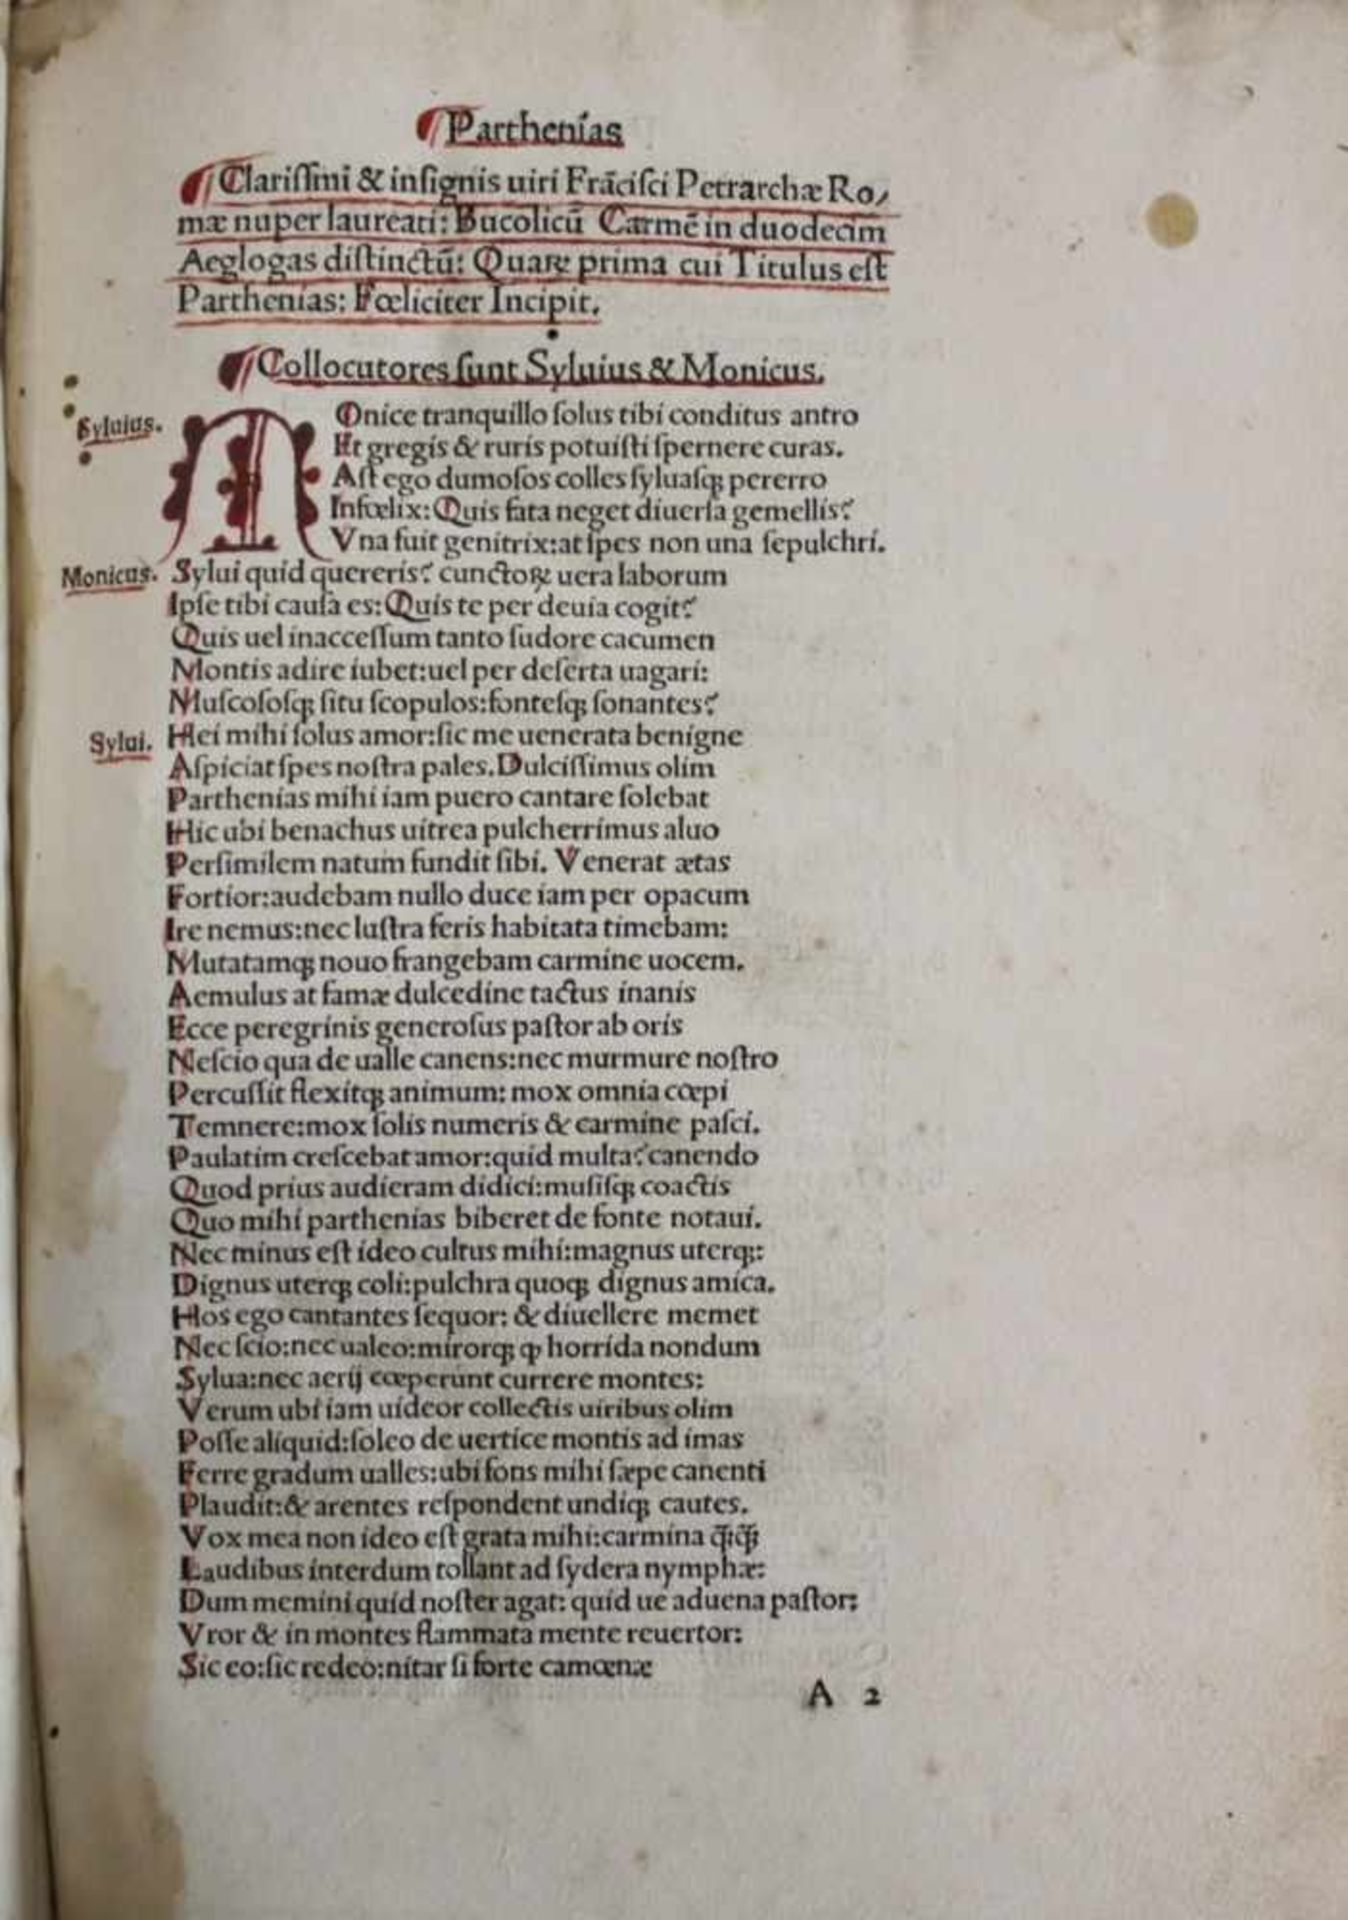 Parthenias
Clariſſimi & inſignis uiri Frāciſci Petrarchæ Ro,
mæ nuper laureati: Bucolicū Carmē in duodecim
Aeglogas diſtinctū: Quaꝝ prima cui Titulus eſt
Parthenias: Fœliciter Incipit.
Collocutores ſunt Syluius & Monicus.
Syluius. MOnice tranquillo ſolus tibi conditus antro
Et gregis & ruris potuiſti ſpernere curas.
Aſt ego dumoſos colles ſyluaſqꝫ pererro
Infœlix: Quis fata neget diuerſa gemellis?
Vna fuit genitrix:at ſpes non una ſepulchri.
Monicus. Sylui quid quereris? cunctoꝝ uera laborum
Ipſe tibi cauſa es: Quis te per deuia cogit?
Quis uel inacceſſum tanto ſudore cacumen
Montis adire iubet:uel per deſerta uagari:
Muſcoſoſqꝫ ſitu ſcopulos:fonteſqꝫ ſonantes?
Sylui. Hei mihi ſolus amor:ſic me uenerata benigne
Aſpiciat ſpes noſtra pales. Dulciſſimus olim
Parthenias mihi iam puero cantare ſolebat
Hic ubi benachus uitrea pulcherrimus aluo
Perſimilem natum fundit ſibi. Venerat ætas
Fortior:audebam nullo duce iam per opacum
Ire nemus:nec luſtra feris habitata timebam:
Mutatamqꝫ nouo frangebam carmine uocem.
Aemulus at famæ dulcedine tactus inanis
Ecce peregrinis generoſus paſtor ab oris
Neſcio qua de ualle canens:nec murmure noſtro
Percuſſit flexitqꝫ animum: mox omnia cœpi
Temnere:mox ſolis numeris & carmine paſci.
Paulatim creſcebat amor:quid multa? canendo
Quod prius audieram didici:muſiſqꝫ coactis
Quo mihi parthenias biberet de fonte notaui.
Nec minus eſt ideo cultus mihi:magnus uterqꝫ:
Dignus uterqꝫ coli:pulchra quoqꝫ dignus amica.
Hos ego cantantes ſequor: & diuellere memet
Nec ſcio:nec ualeo:mirorqꝫ ꝙ horrida nondum
Sylua:nec aerij cœperunt currere montes:
Verum ubi iam uideor collectis uiribus olim
Poſſe aliquid:ſoleo de uertice montis ad imas
Ferre gradum ualles:ubi fons mihi ſæpe canenti
Plaudit:& arentes reſpondent undiqꝫ cautes.
Vox mea non ideo eſt grata mihi:carmina q̄qꝫ̄
Laudibus interdum tollant ad ſydera nymphæ:
Dum memini quid noſter agat: quid ue aduena paſtor:
Vror & in montes flammata mente reuertor:
Sic eo:ſic redeo:nitar ſi forte camœnæ
A 2